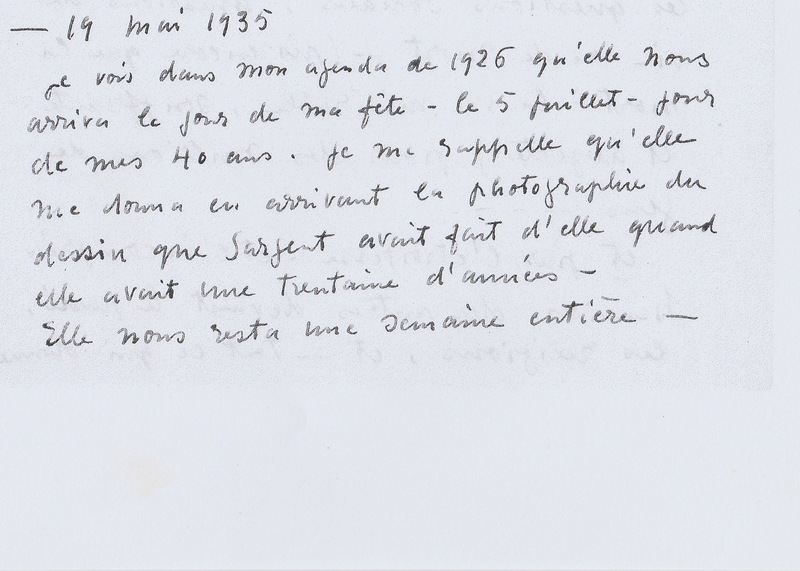 — 19 mai 1935
Je vois dans mon agenda de 1926 qu'elle nous
arriva le jour de ma fête - le 5 juillet - jour
de mes 40 ans. Je me rappelle qu'elle
me donna en arrivant la photographie du
dessin que Sargent avait fait d'elle quand
elle avait une trentaine d'années -
Elle nous resta une semaine entière —